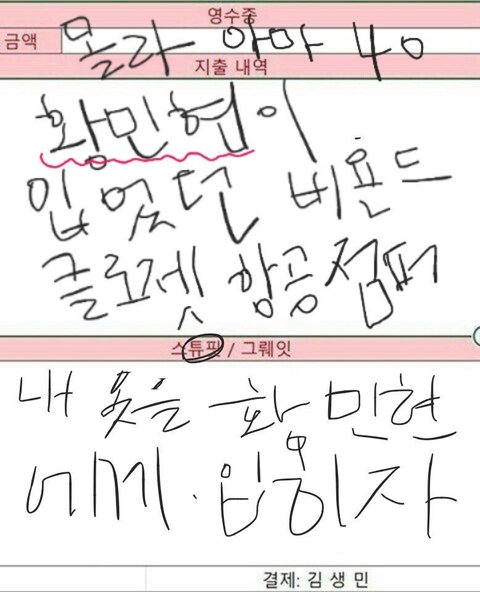 영수증
금액 몰라 아마 40
지출 내역
황민현이
입었던 비욘드
클로젯 항공점퍼
스튜핏 / 그뤠잇
내 옷을 황민현
에게 입히자
결제: 김 생 민